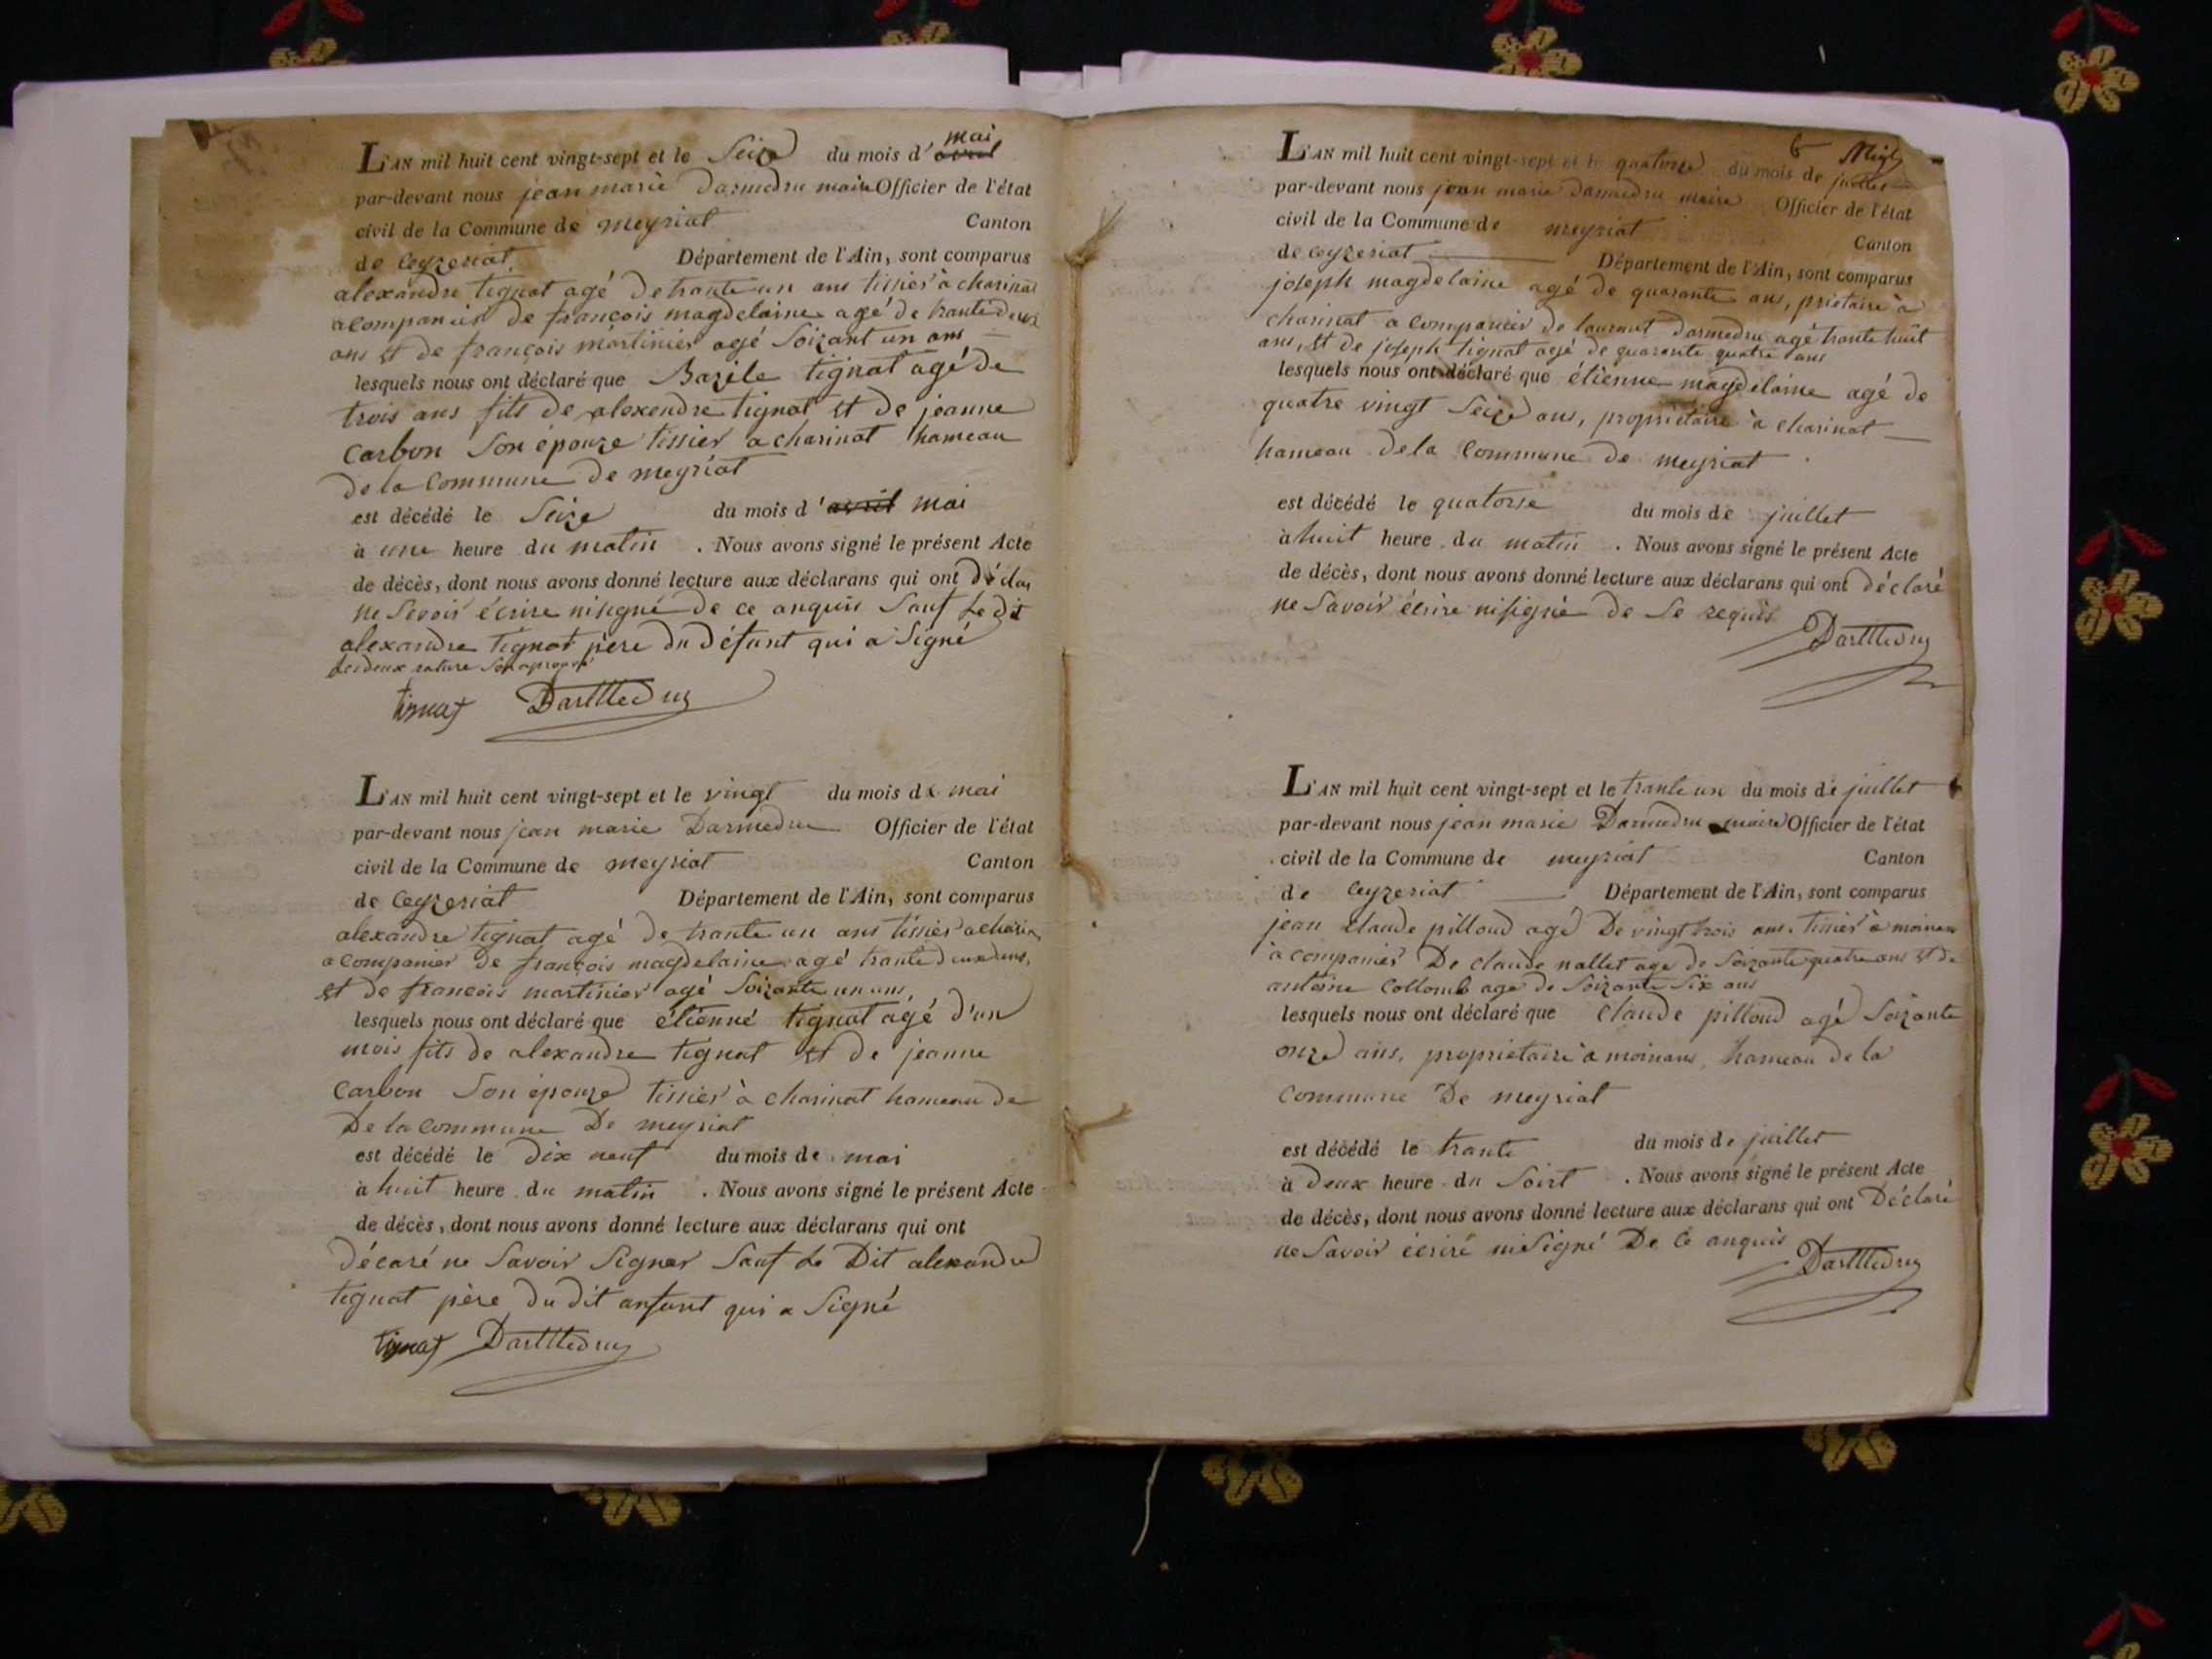 L'AN mil huit cent vingt-sept et le Seize du mois d' avril mai
par-devant nous jean marie Darmedru maire Officier de l'état
civil de la Commune de meyriat Canton
de Ceyzeriat Département de l'Ain, sont comparus
alexandre tignat agé de trante un ans tissier à charinat
acompanier de françois magdelaine agé de trante deux
ans et de françois martinier agé Soizant un ans
lesquels nous ont déclaré que Bazile tignat agé de
trois ans fils de alexendre tignat et de jeanne
Carbon Son épouze tissier a charinat hameau
de la Commune de meyriat
est décédé le Seize du mois d' avril mai
à une heure du matin . Nous avons signé le présent Acte
de décès, dont nous avons donné lecture aux déclarans qui ont déclar
ne Sevoir écrire ni signé de ce anquis Sauf Le dit
alexandre tignat père du défunt qui a Signé
les deux rature Son aprouvé
tignat DarMedru
L'AN mil huit cent vingt-sept et le vingt du mois de mai
par-devant nous jean marie Darmedru Officier de l'état
civil de la Commune de meyriat Canton
de Ceyzeriat Département de l'Ain, sont comparus
alexandre tignat agé de trante un ans tissier a charin
acompanier de françois magdelaine agé trante deux ans,
et de francois martinier agé Soizante un ans,
lesquels nous ont déclaré que étienne tignat agé d'un
mois fils de alexandre tignat et de jeanne
Carbon Son épouze tissier à charinat hameau de
De la Commune De meyriat
est décédé le dix neuf du mois de mai
à huit heure du matin . Nous avons signé le présent Acte
de décès, dont nous avons donné lecture aux déclarans qui ont
décaré ne Savoir Signer Sauf Le Dit alexandre
tignat père du dit anfant qui a Signé
tignat DarMedru
6
L'AN mil huit cent vingt-sept et le quatorse du mois de juillet
par-devant nous jean marie Darmedru maire Officier de l'état
civil de la Commune de meyriat Canton
de ceyzeriat Département de l'Ain, sont comparus
joseph magdelaine agé de quarante ans, priétaire à
charinat a companier de laurant darmedru agé trante huit
ans, et de joseph tignat agé de quarante quatre ans
lesquels nous ont déclaré que étienne magdelaine agé de
quatre vingt Seize ans, propriétaire à charinat
hameau de la Commune de meyriat
est décédé le quatorse du mois de juillet
à huit heure du matin . Nous avons signé le présent Acte
de décès, dont nous avons donné lecture aux déclarans qui ont déclaré
ne Savoir écrire ni signé de Se requis
DarMedru
L'AN mil huit cent vingt-sept et le trante un du mois de juillet
par-devant nous jean marie Darmedru maire Officier de l'état
civil de la Commune de meyriat Canton
de Ceyzeriat Département de l'Ain, sont comparus
jean Claude pilloud agé De vingt trois ans. tissier à moinans
à companier De claude nallet age de Soizante quatre ans et de
antoine Collomb age de Soizante Six ans
lesquels nous ont déclaré que Claude pilloud agé Soizante
onze ans, propriétaire à moinans, hameau de la
Commune De meyriat
est décédé le trante du mois de juillet
à Deux heure du Soirt . Nous avons signé le présent Acte
de décès, dont nous avons donné lecture aux déclarans qui ont Déclaré
ne Savoir écriré ni Signé De Ce anquis
DarMedru